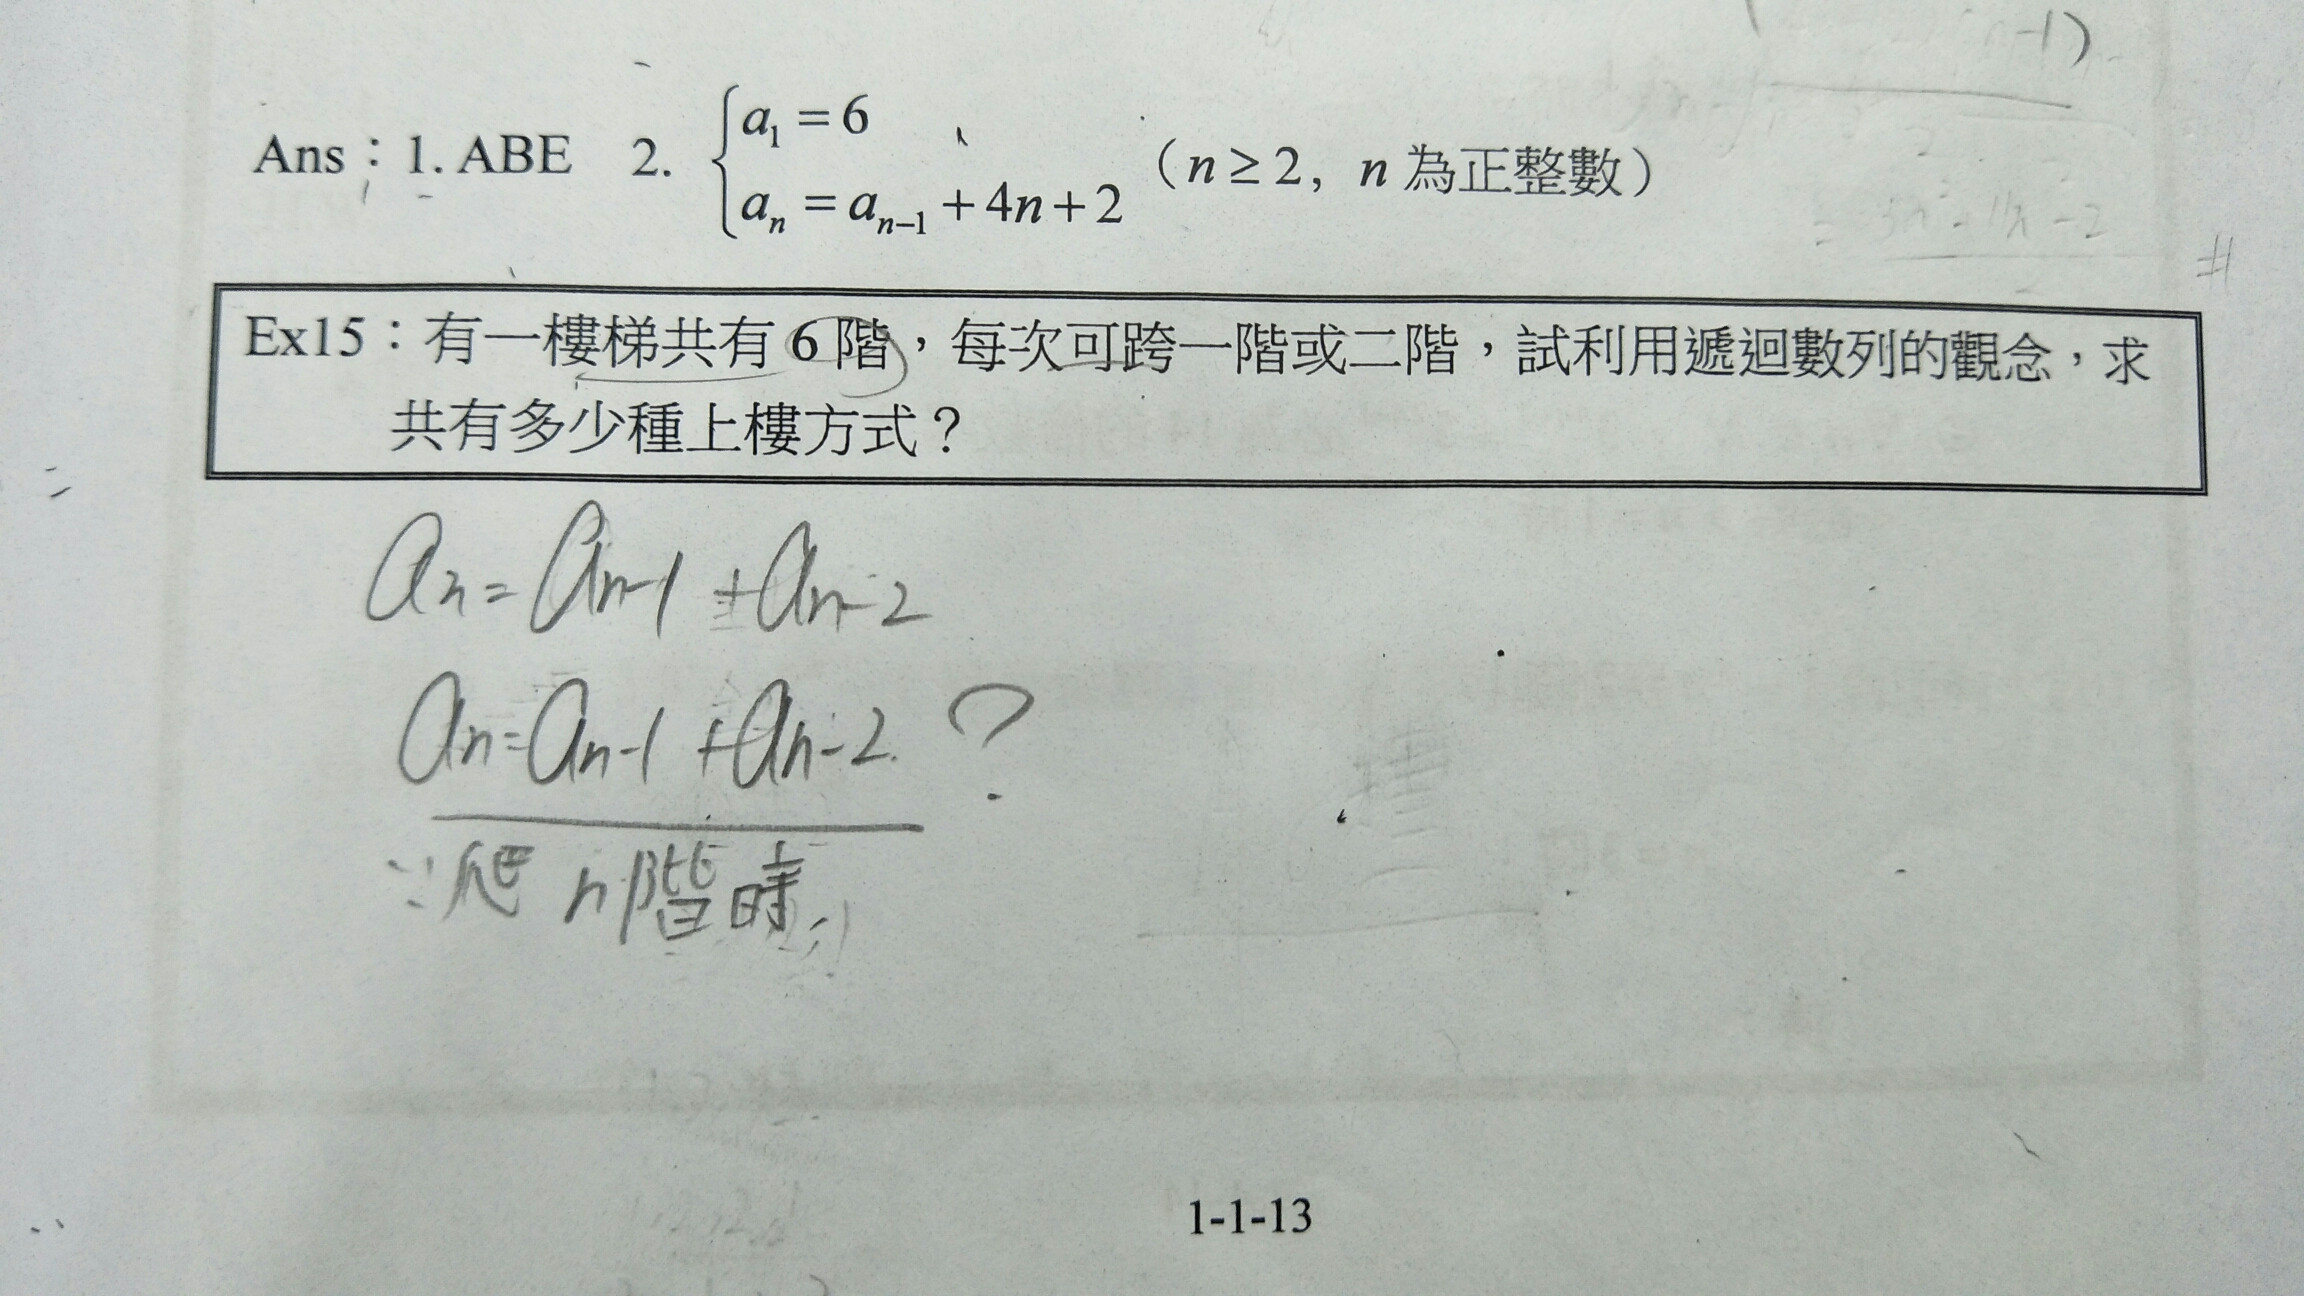 n-1)
Ans：1. ABE 2. { a₁ = 6
aₙ = aₙ₋₁ + 4n + 2 （n ≥ 2, n 為正整數）
Ex15：有一樓梯共有 6 階，每次可跨一階或二階，試利用遞迴數列的觀念，求
共有多少種上樓方式？
aₙ = aₙ₋₁ + aₙ₋₂
aₙ = aₙ₋₁ + aₙ₋₂ ?
∵爬 n 階時,
1-1-13